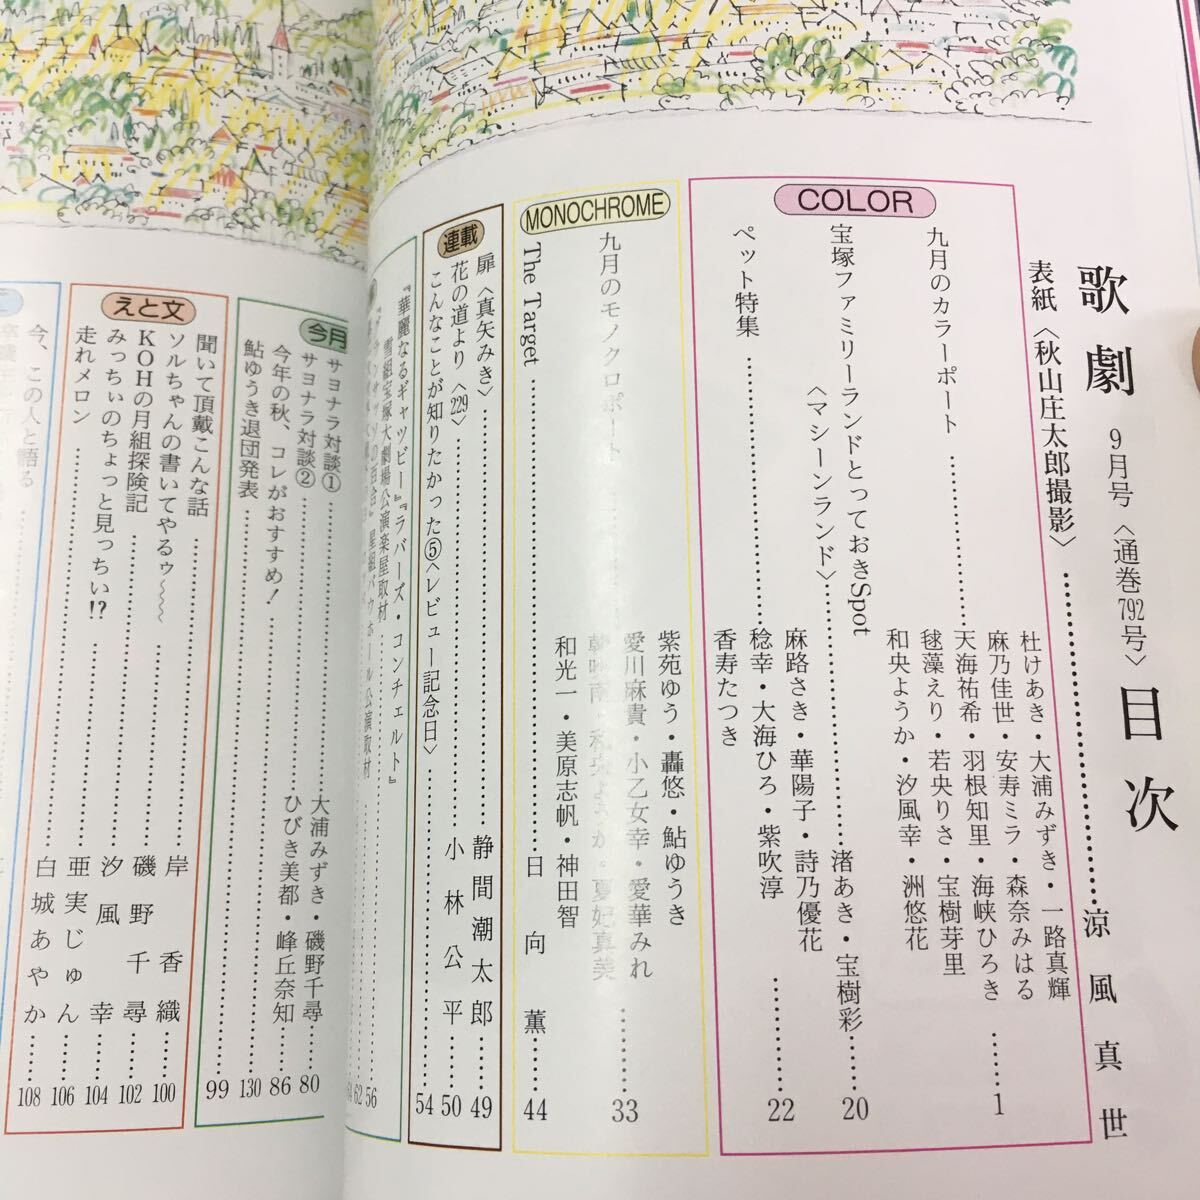 歌劇 9月号〈通巻792号〉目次
表紙〈秋山庄太郎撮影〉……涼風真世
COLOR
九月のカラーポート……1
杜けあき・大浦みずき・一路真輝
麻乃佳世・安寿ミラ・森奈みはる
天海祐希・羽根知里・海峡ひろき
毬藻えり・若央りさ・宝樹芽里
和央ようか・汐風幸・洲悠花
宝塚ファミリーランドとっておきSpot
〈マシーンランド〉……渚あき・宝樹彩……20
ペット特集……22
麻路さき・華陽子・詩乃優花
稔幸・大海ひろ・紫吹淳
香寿たつき
MONOCHROME
九月のモノクロポート……33
紫苑ゆう・轟悠・鮎ゆうき
愛川麻貴・小乙女幸・愛華みれ
夏妃真美
和光一・美原志帆・神田智
The Target……日向薫……44
連載
扉〈真矢みき〉……静間潮太郎……49
花の道より〈229〉……小林公平……50
こんなことが知りたかった⑤〈レビュー記念日〉……54
『華麗なるギャツビー』『ラバーズ・コンチェルト』
雪組宝塚大劇場公演楽屋取材……56
星組バウホール公演取材……62
今月
サヨナラ対談①……大浦みずき・磯野千尋……80
サヨナラ対談②……ひびき美都・峰丘奈知……86
今年の秋、コレがおすすめ！……130
鮎ゆうき退団発表……99
えと文
聞いて頂戴こんな話……岸香織……100
ソルちゃんの書いてやるゥ〜〜〜……磯野千尋……102
KOHの月組探険記……汐風幸……104
みっちぃのちょっと見っちい!?……亜実じゅん……106
走れメロン……白城あやか……108
今、この人と語る